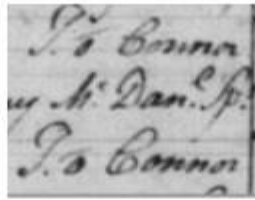 T. o Connor
Mr. Danl. Sp:
T. o Connor